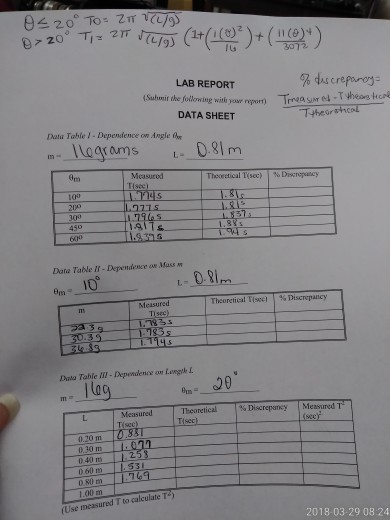 θ ≤ 20° T0 = 2π √(L/g)
θ > 20° T1 = 2π √(L/g) (1+(1(θ)²/16)+(11(θ)⁴/3072)
LAB REPORT
% discrepancy =
(Submit the following with your report)
Tmeasured - Ttheoretical
Ttheoretical
DATA SHEET
Data Table I - Dependence on Angle θm
m = 16grams L = 0.81m
θm Measured T(sec) Theoretical T(sec) % Discrepancy
10º 1.774s 1.81s
20º 1.777s 1.81s
30º 1.796s 1.837s
45º 1.817s 1.88s
60º 1.837s 1.94s
Data Table II - Dependence on Mass m
θm = 10° L = 0.81m
m Measured T(sec) Theoretical T(sec) % Discrepancy
22.3g 1.783s
30.3g 1.783s
36.8g 1.794s
Data Table III - Dependence on Length L
m = 16g θm = 20°
L Measured T(sec) Theoretical T(sec) % Discrepancy Measured T² (sec)²
0.20 m 0.881
0.30 m 1.077
0.40 m 1.258
0.60 m 1.531
0.80 m 1.769
1.00 m
(Use measured T to calculate T²)
2018-03-29 08:24